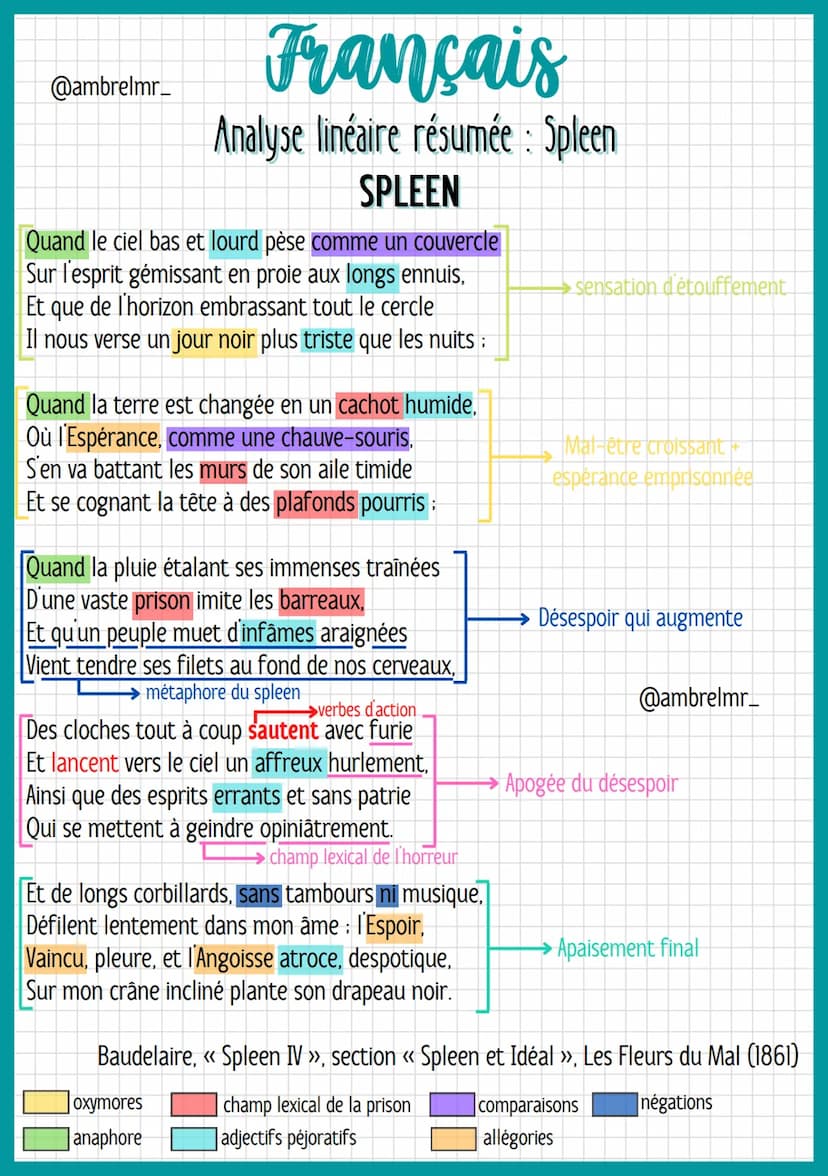 Français
@ambrelmr_
Analyse linéaire résumée : Spleen
SPLEEN
Quand le ciel bas et lourd pèse comme un couvercle
Sur l'esprit gémissant en proie aux longs ennuis,
Et que de l'horizon embrassant tout le cercle
Il nous verse un jour noir plus triste que les nuits ;
sensation d'étouffement
Quand la terre est changée en un cachot humide,
Où l'Espérance, comme une chauve-souris,
S'en va battant les murs de son aile timide
Et se cognant la tête à des plafonds pourris ;
Mal-être croissant +
espérance emprisonnée
Quand la pluie étalant ses immenses traînées
D'une vaste prison imite les barreaux,
Et qu'un peuple muet d'infâmes araignées
Vient tendre ses filets au fond de nos cerveaux,
Désespoir qui augmente
métaphore du spleen
@ambrelmr_
verbes d'action
Des cloches tout à coup sautent avec furie
Et lancent vers le ciel un affreux hurlement,
Ainsi que des esprits errants et sans patrie
Qui se mettent à geindre opiniâtrement.
Apogée du désespoir
champ lexical de l'horreur
Et de longs corbillards, sans tambours ni musique,
Défilent lentement dans mon âme ; l'Espoir,
Vaincu, pleure, et l'Angoisse atroce, despotique,
Sur mon crâne incliné plante son drapeau noir.
Apaisement final
Baudelaire, « Spleen IV », section « Spleen et Idéal », Les Fleurs du Mal (1861)
oxymores
champ lexical de la prison
comparaisons
négations
anaphore
adjectifs péjoratifs
allégories